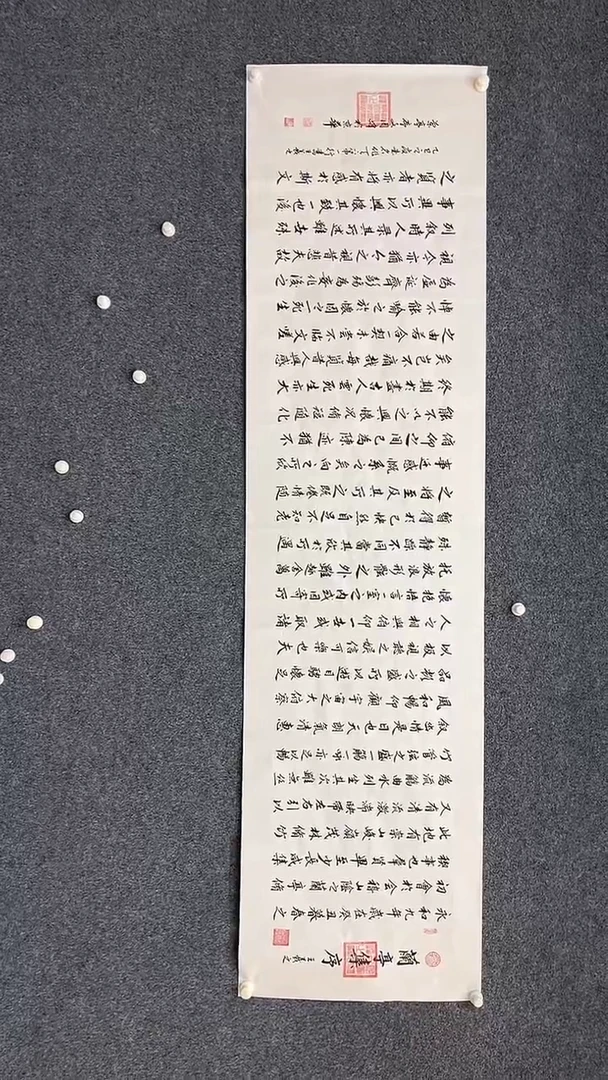 蘭亭集序 王羲之
永和九年歲在癸丑暮春之
初會於會稽山陰之蘭亭脩
禊事也群賢畢至少長咸集
此地有崇山峻嶺茂林脩竹
又有清流激湍暎帶左右引以
為流觴曲水列坐其次雖無絲
竹管弦之盛一觴一詠亦足以暢
敘幽情是日也天朗氣清惠
風和暢仰觀宇宙之大俯察
品類之盛所以遊目騁懷足
以極視聽之娛信可樂也夫
人之相與俯仰一世或取諸
懷抱悟言一室之內或因寄所
託放浪形骸之外雖趣舍萬
殊靜躁不同當其欣於所遇
暫得於己快然自足不知老
之將至及其所之既倦情隨
事遷感慨系之矣向之所欣
俯仰之間已為陳迹猶不
能不以之興懷況脩短隨化
終期於盡古人雲死生亦大
矣豈不痛哉每覽昔人興感
之由若合一契未嘗不臨文嗟
悼不能喻之於懷固知一死生
為虛誕齊彭殤為妄作後之
視今亦猶今之視昔悲夫故
列敘時人錄其所述雖世殊
事異所以興懷其致一也後
之覽者亦將有感於斯文